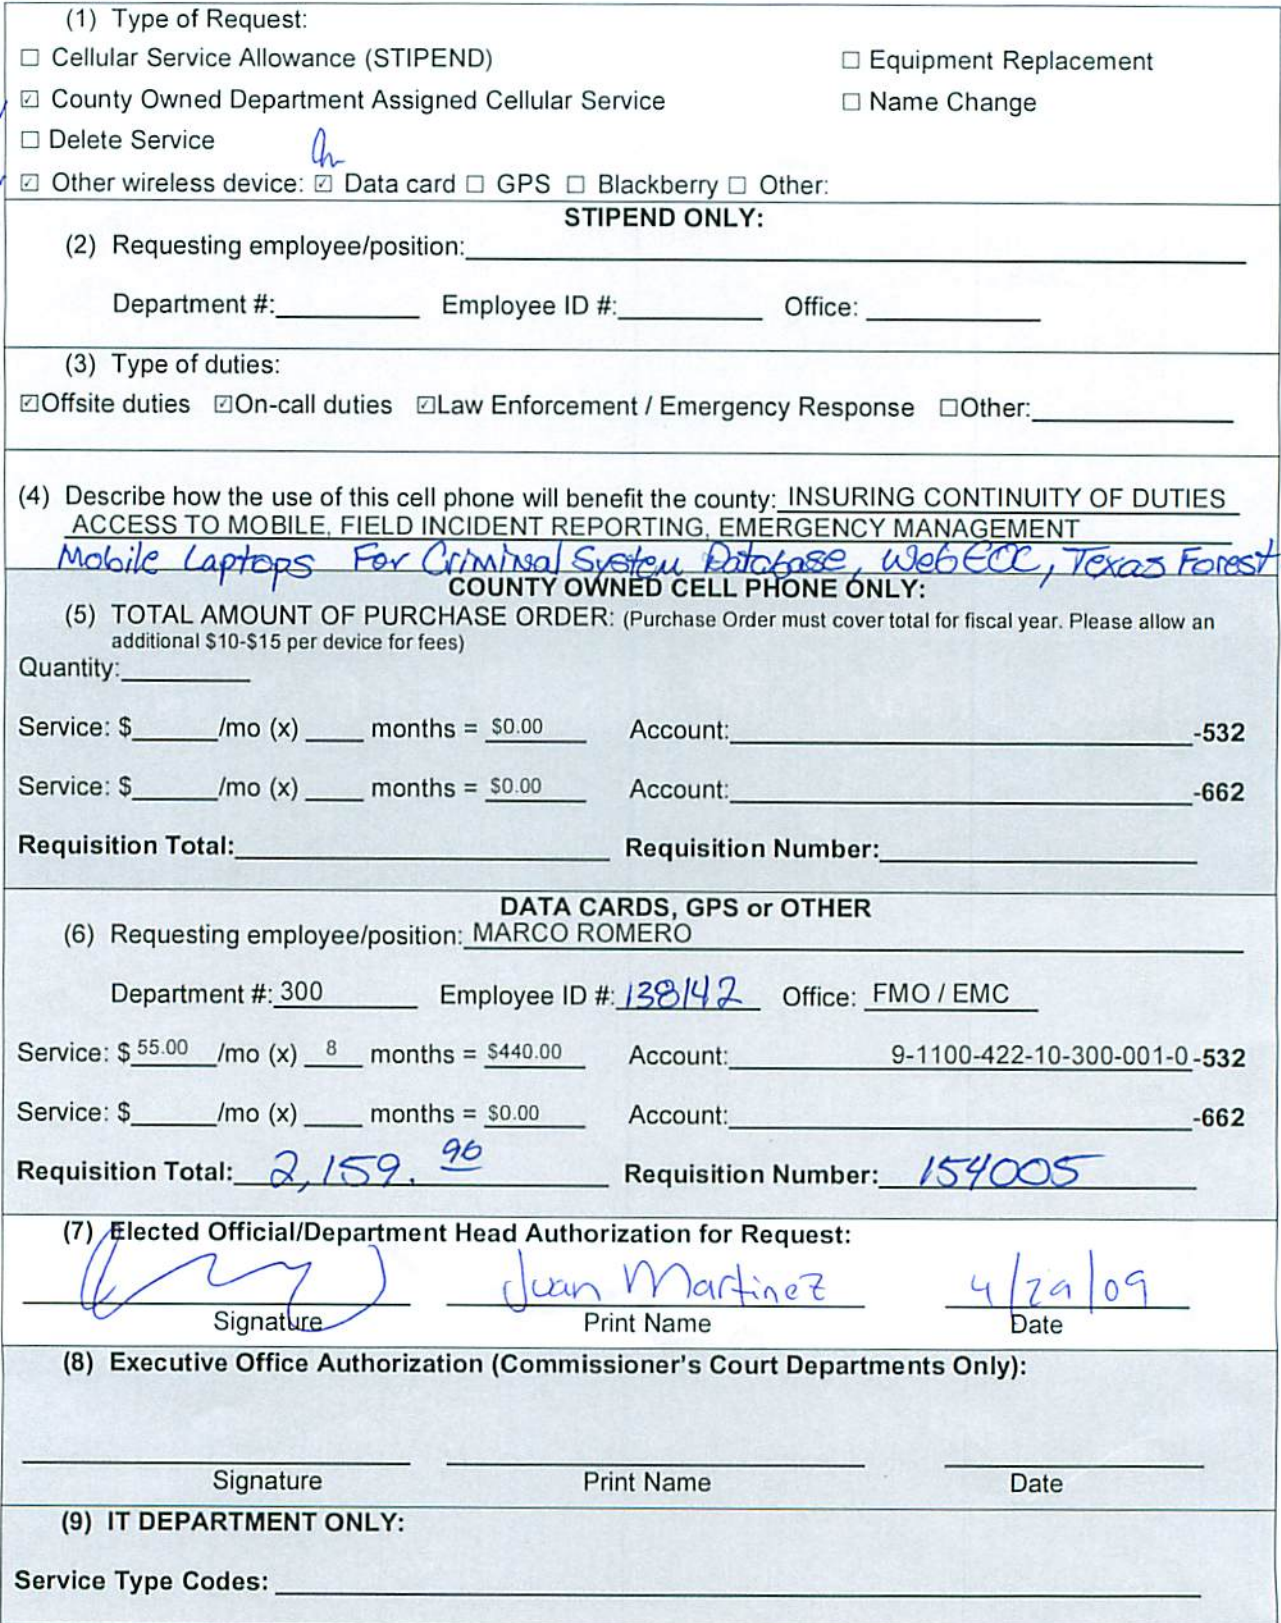 (1) Type of Request:
☐ Cellular Service Allowance (STIPEND) ☐ Equipment Replacement
☑ County Owned Department Assigned Cellular Service ☐ Name Change
☐ Delete Service
☑ Other wireless device: ☑ Data card ☐ GPS ☐ Blackberry ☐ Other:
STIPEND ONLY:
(2) Requesting employee/position:
Department #: Employee ID #: Office:
(3) Type of duties:
☑Offsite duties ☑On-call duties ☑Law Enforcement / Emergency Response ☐Other:
(4) Describe how the use of this cell phone will benefit the county: INSURING CONTINUITY OF DUTIES
ACCESS TO MOBILE, FIELD INCIDENT REPORTING, EMERGENCY MANAGEMENT
Mobile Laptops For Criminal System Database, WebEOC, Texas Forest
COUNTY OWNED CELL PHONE ONLY:
(5) TOTAL AMOUNT OF PURCHASE ORDER: (Purchase Order must cover total for fiscal year. Please allow an
additional $10-$15 per device for fees)
Quantity:
Service: $ /mo (x) months = $0.00 Account: -532
Service: $ /mo (x) months = $0.00 Account: -662
Requisition Total: Requisition Number:
DATA CARDS, GPS or OTHER
(6) Requesting employee/position: MARCO ROMERO
Department #: 300 Employee ID #: 138142 Office: FMO / EMC
Service: $ 55.00 /mo (x) 8 months = $440.00 Account: 9-1100-422-10-300-001-0 -532
Service: $ /mo (x) months = $0.00 Account: -662
Requisition Total: 2,159. 96 Requisition Number: 154005
(7) Elected Official/Department Head Authorization for Request:
Juan Martinez 4/29/09
Signature Print Name Date
(8) Executive Office Authorization (Commissioner's Court Departments Only):
Signature Print Name Date
(9) IT DEPARTMENT ONLY:
Service Type Codes: